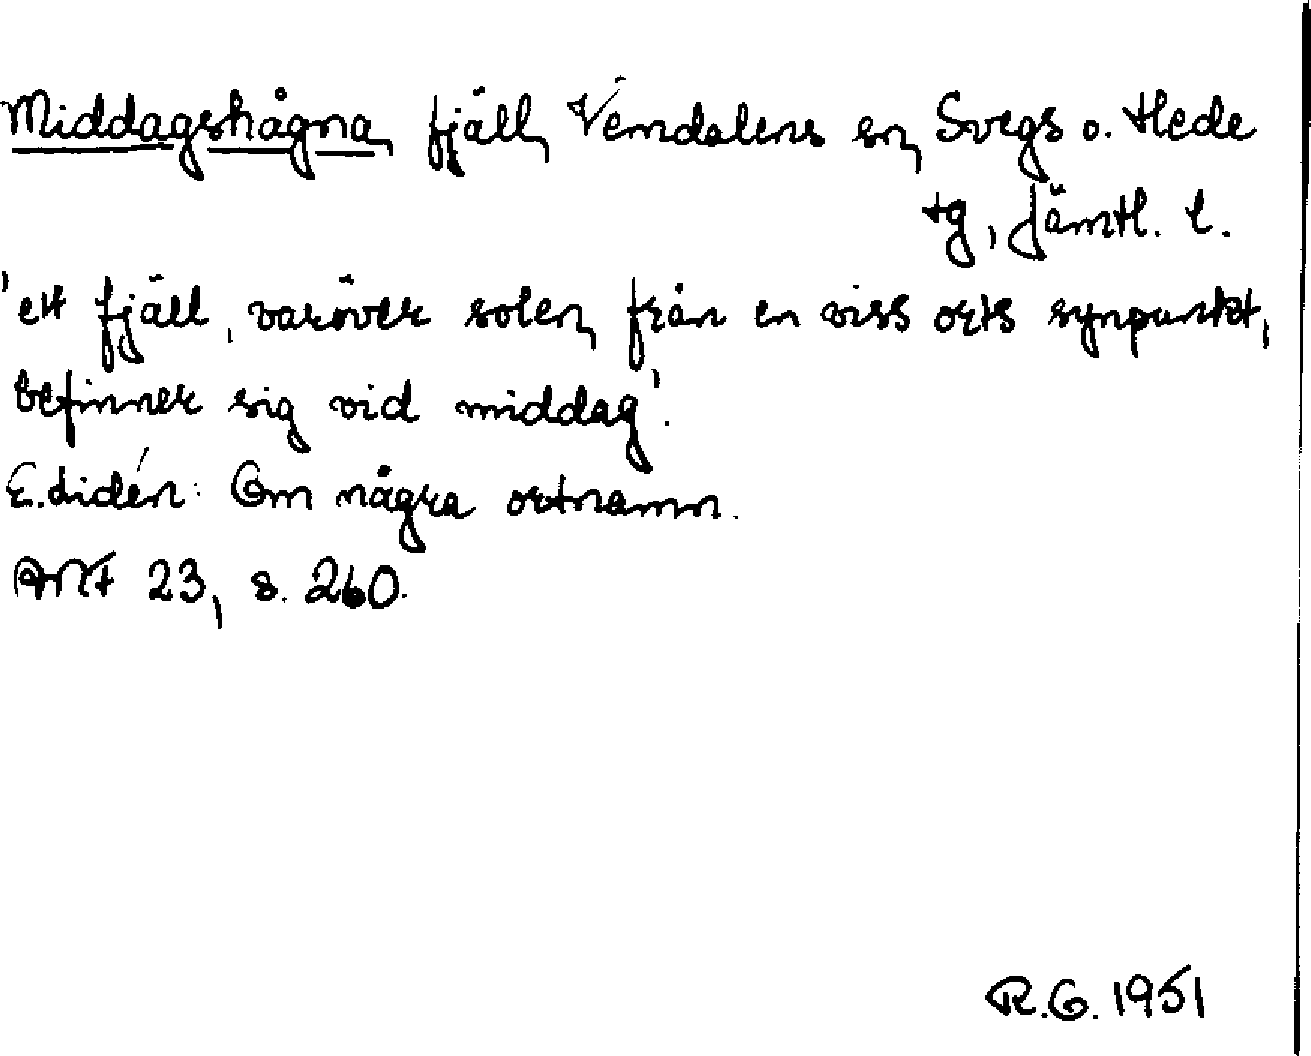 Middagshågna, fjäll, Vemdalens sn, Svegs o. Hede
tg, Jämtl. l.
'ett fjäll, varöver solen, från en viss orts synpunkt,
befinner sig vid middag'.
E. Lidén: Om några ortnamn.
ANF 23, s. 260.
R.G. 1951